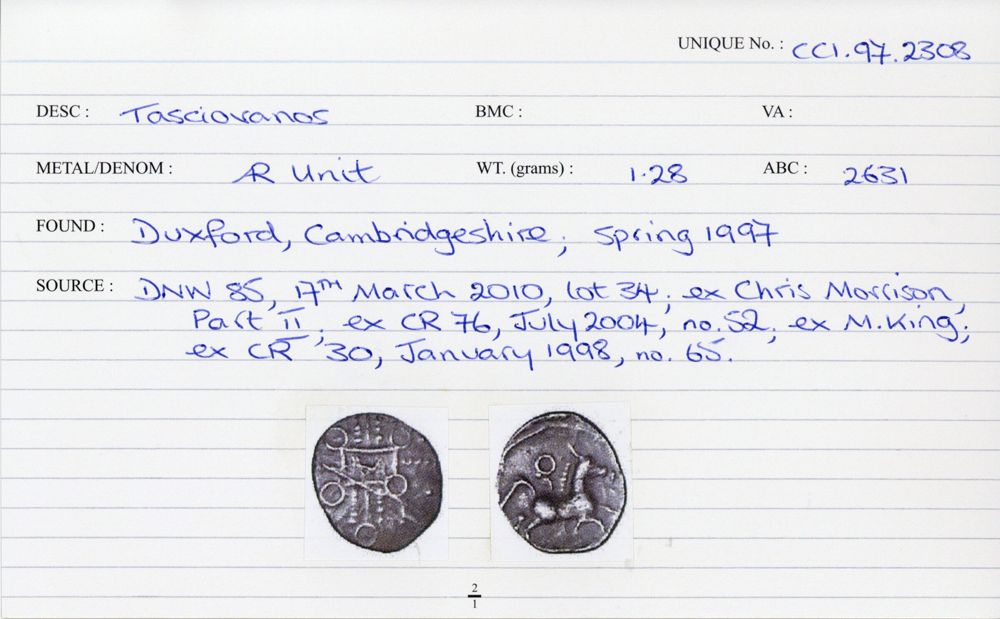 UNIQUE No. : CCI.97.2308
DESC : Tasciovanos BMC : VA :
METAL/DENOM : AR Unit WT. (grams) : 1.28 ABC : 2631
FOUND : Duxford, Cambridgeshire; Spring 1997
SOURCE : DNW 85, 17TH March 2010, lot 34; ex Chris Morrison,
Part II; ex CR 76, July 2004, no. 52; ex M. King;
ex CR 30, January 1998, no. 65.
2
1